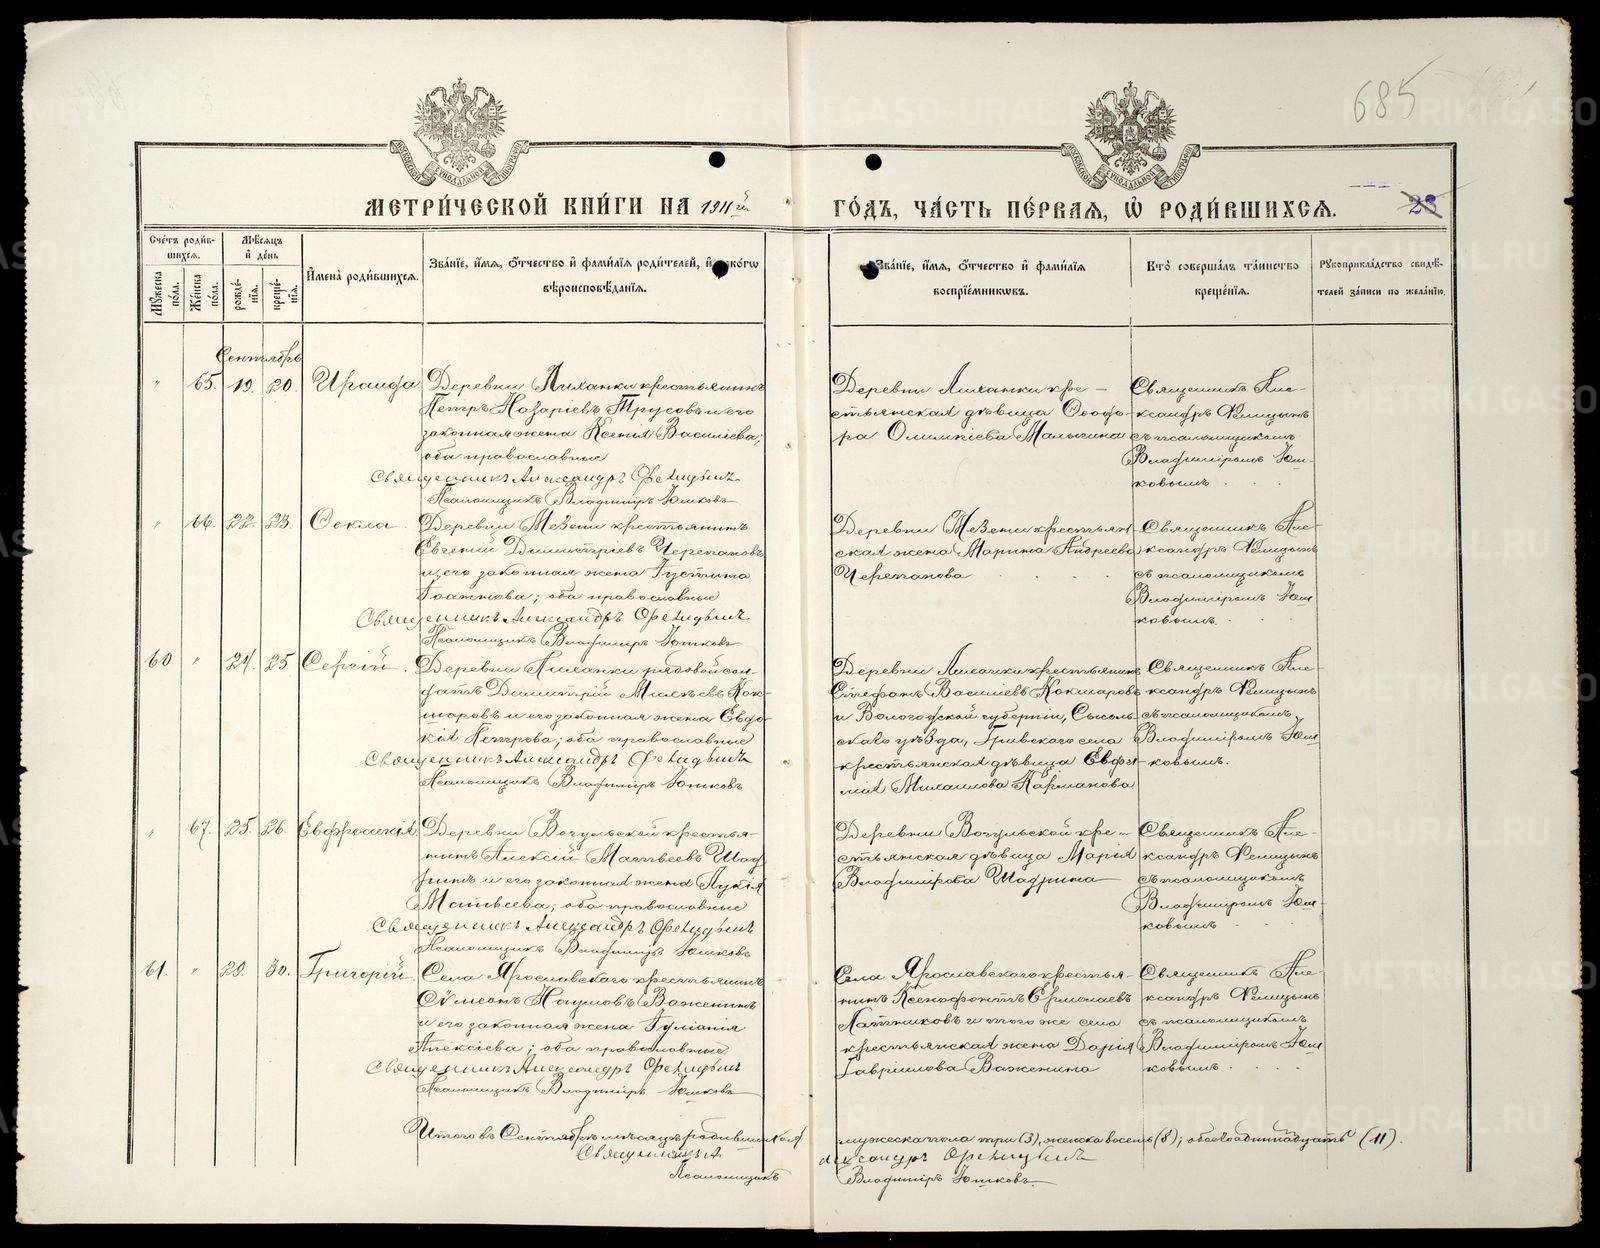 685
МЕТРИ́ЧЕСКОЙ КНИ́ГИ НА 1911й
ГО́ДЪ, ЧА́СТЬ ПЕ́РВАЯ, Ѡ РОДИ́ВШИХСЯ.
23
Сче́тъ роди́в-
шихся.
Мѣ́сяцъ
и де́нь
Мꙋ́жеска по́ла.
Же́нска по́ла.
рожде́-нїя.
креще́-нїя.
Имена̀ роди́вшихся.
Зва́нїе, и́мя, о́тчество и фами́лїя роди́телей, и како́гѡ
вѣроисповѣ́данїя.
Зва́нїе, и́мя, о́тчество и фами́лїя
воспрїе́мникѡвъ.
Кто̀ соверша́лъ та́инство
креще́нїя.
Рꙋкоприкла́дство свидѣ́-
телей за́писи по жела́нїю.
Сентябрь
" 65. 19. 20. Ираида
Деревни Лиханки крестьянинъ
Петръ Назаріевъ Трусовъ и его
законная жена Ксенія Василіева;
оба православные
Священникъ Александръ Фелицынъ
Псаломщикъ Владимiръ Юшковъ
Деревни Лиханки кре-
стьянская дѣвица Ѳеодо-
ра Олимпіева Малыгина
Священникъ Але-
ксандръ Фелицынъ
съ псаломщикомъ
Владиміромъ Юш-
ковымъ
" 66. 22. 23. Ѳекла
Деревни Мезени крестьянинъ
Евгеній Димитріевъ Черепановъ
и его законная жена Іустина
Іоаннова; оба православные
Священникъ Александръ Фелицынъ
Псаломщикъ Владимiръ Юшковъ
Деревни Мезени крестьян-
ская жена Марина Андреева
Черепанова
Священникъ Але-
ксандръ Фелицынъ
съ псаломщикомъ
Владиміромъ Юш-
ковымъ.
60 " 24. 25 Сергій.
Деревни Лиханки рядовой сол-
датъ Димитрій Михѣевъ Кок-
шаровъ и его законная жена Евдо-
кія Петрова; оба православные
Священникъ Александръ Фелицынъ
Псаломщикъ Владимiръ Юшковъ
Деревни Лиханки крестьянинъ
Стефанъ Василіевъ Кокшаровъ
и Вологодской губерніи, Сысоль-
скаго уѣзда, Гривскаго села
крестьянская дѣвица Евфи-
мія Михаилова Карманова
Священникъ Але-
ксандръ Фелицынъ
съ псаломщикомъ
Владиміромъ Юш-
ковымъ.
" 67. 25. 26. Евфросинія
Деревни Вогульской крестья-
нинъ Алексій Матвеевъ Шад-
ринъ и его законная жена Лукія
Матвеева; оба православные
Священникъ Александръ Фелицынъ
Псаломщикъ Владимiръ Юшковъ
Деревни Вогульской кре-
стьянская дѣвица Марія
Владимірова Шадрина
Священникъ Але-
ксандръ Фелицынъ
съ псаломщикомъ
Владиміромъ Юш-
ковымъ
61. " 29. 30. Григорій.
Села Ярославскаго крестьянинъ
Сѵмеонъ Наумовъ Важенинъ
и его законная жена Іуліанія
Алексіева; оба православные.
Священникъ Александръ Фелицынъ
Псаломщикъ Владимiръ Юшковъ
Села Ярославскаго крестья-
нинъ Ксенофонтъ Ермолаевъ
Латниковъ и того же села
крестьянская жена Дарія
Гавріилова Важенина
Священникъ Але-
ксандръ Фелицынъ
съ псаломщикомъ
Владиміромъ Юш-
ковымъ
Итого въ Сентябрѣ мѣсяцѣ родившихся мужеска пола три (3), женска восемь (8); обоего одиннадцать (11).
Священникъ Александръ Фелицынъ
Псаломщикъ Владимiръ Юшковъ
METRIKI.GASO-URAL.RU